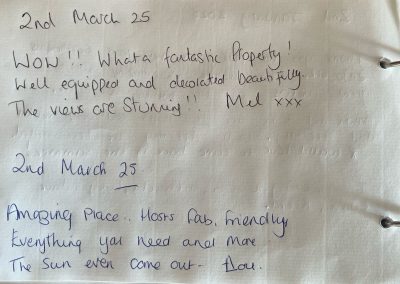 2nd March 25
WOW!! What a fantastic Property!
Well equipped and decorated beautifully.
The views are Stunning!! Mel xxx
2nd March 25
Amazing Place.. Hosts Fab, friendly
Everything you need and more
The Sun even came out-